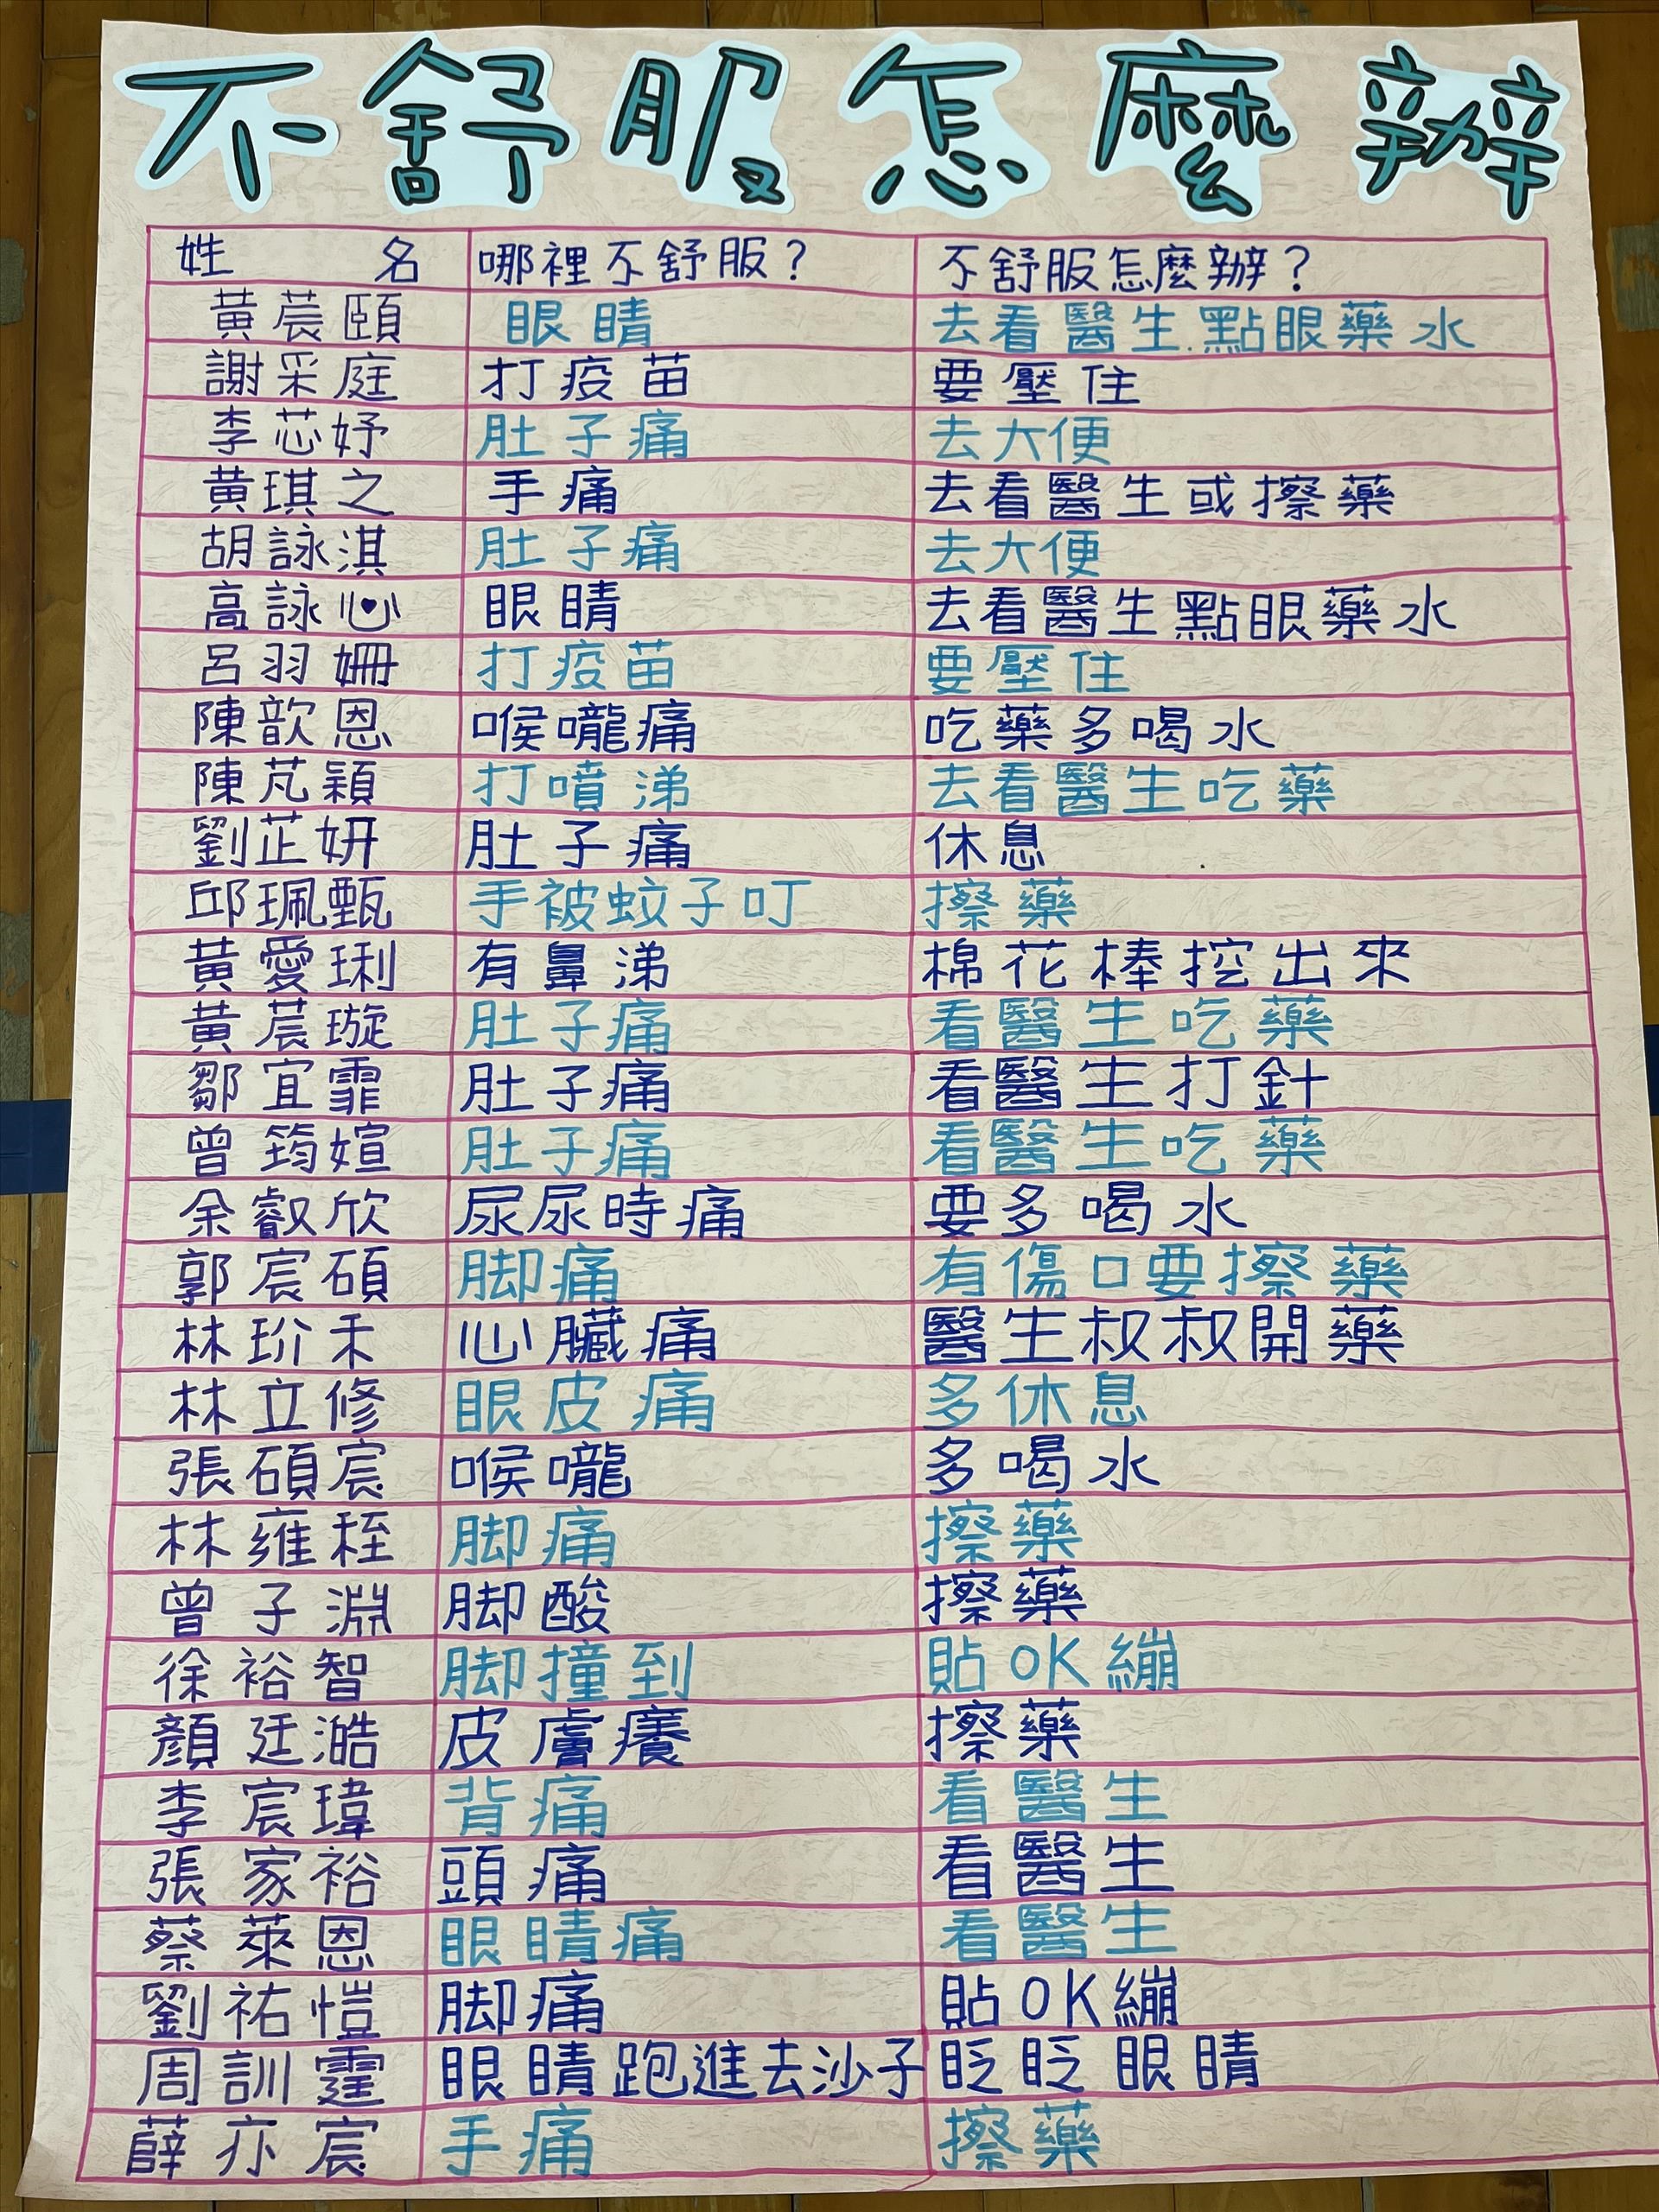 不舒服怎麼辦
姓名 哪裡不舒服？ 不舒服怎麼辦？
黃莀頤 眼睛 去看醫生.點眼藥水
謝采庭 打疫苗 要壓住
李芯妤 肚子痛 去大便
黃琪之 手痛 去看醫生或擦藥
胡詠淇 肚子痛 去大便
高詠心 眼睛 去看醫生點眼藥水
呂羽姍 打疫苗 要壓住
陳歆恩 喉嚨痛 吃藥多喝水
陳芃穎 打噴涕 去看醫生吃藥
劉芷妍 肚子痛 休息
邱珮甄 手被蚊子叮 擦藥
黃愛琍 有鼻涕 棉花棒挖出來
黃莀璇 肚子痛 看醫生吃藥
鄒宜霏 肚子痛 看醫生打針
曾筠媗 肚子痛 看醫生吃藥
余叡欣 尿尿時痛 要多喝水
郭宸碩 腳痛 有傷口要擦藥
林玠禾 心臟痛 醫生叔叔開藥
林立修 眼皮痛 多休息
張碩宸 喉嚨 多喝水
林雍秷 腳痛 擦藥
曾子淵 腳酸 擦藥
徐裕智 腳撞到 貼OK繃
顏廷澔 皮膚癢 擦藥
李宸瑋 背痛 看醫生
張家裕 頭痛 看醫生
蔡萊恩 眼睛痛 看醫生
劉祐愷 腳痛 貼OK繃
周訓霆 眼睛跑進去沙子 眨眨眼睛
薛亦宸 手痛 擦藥